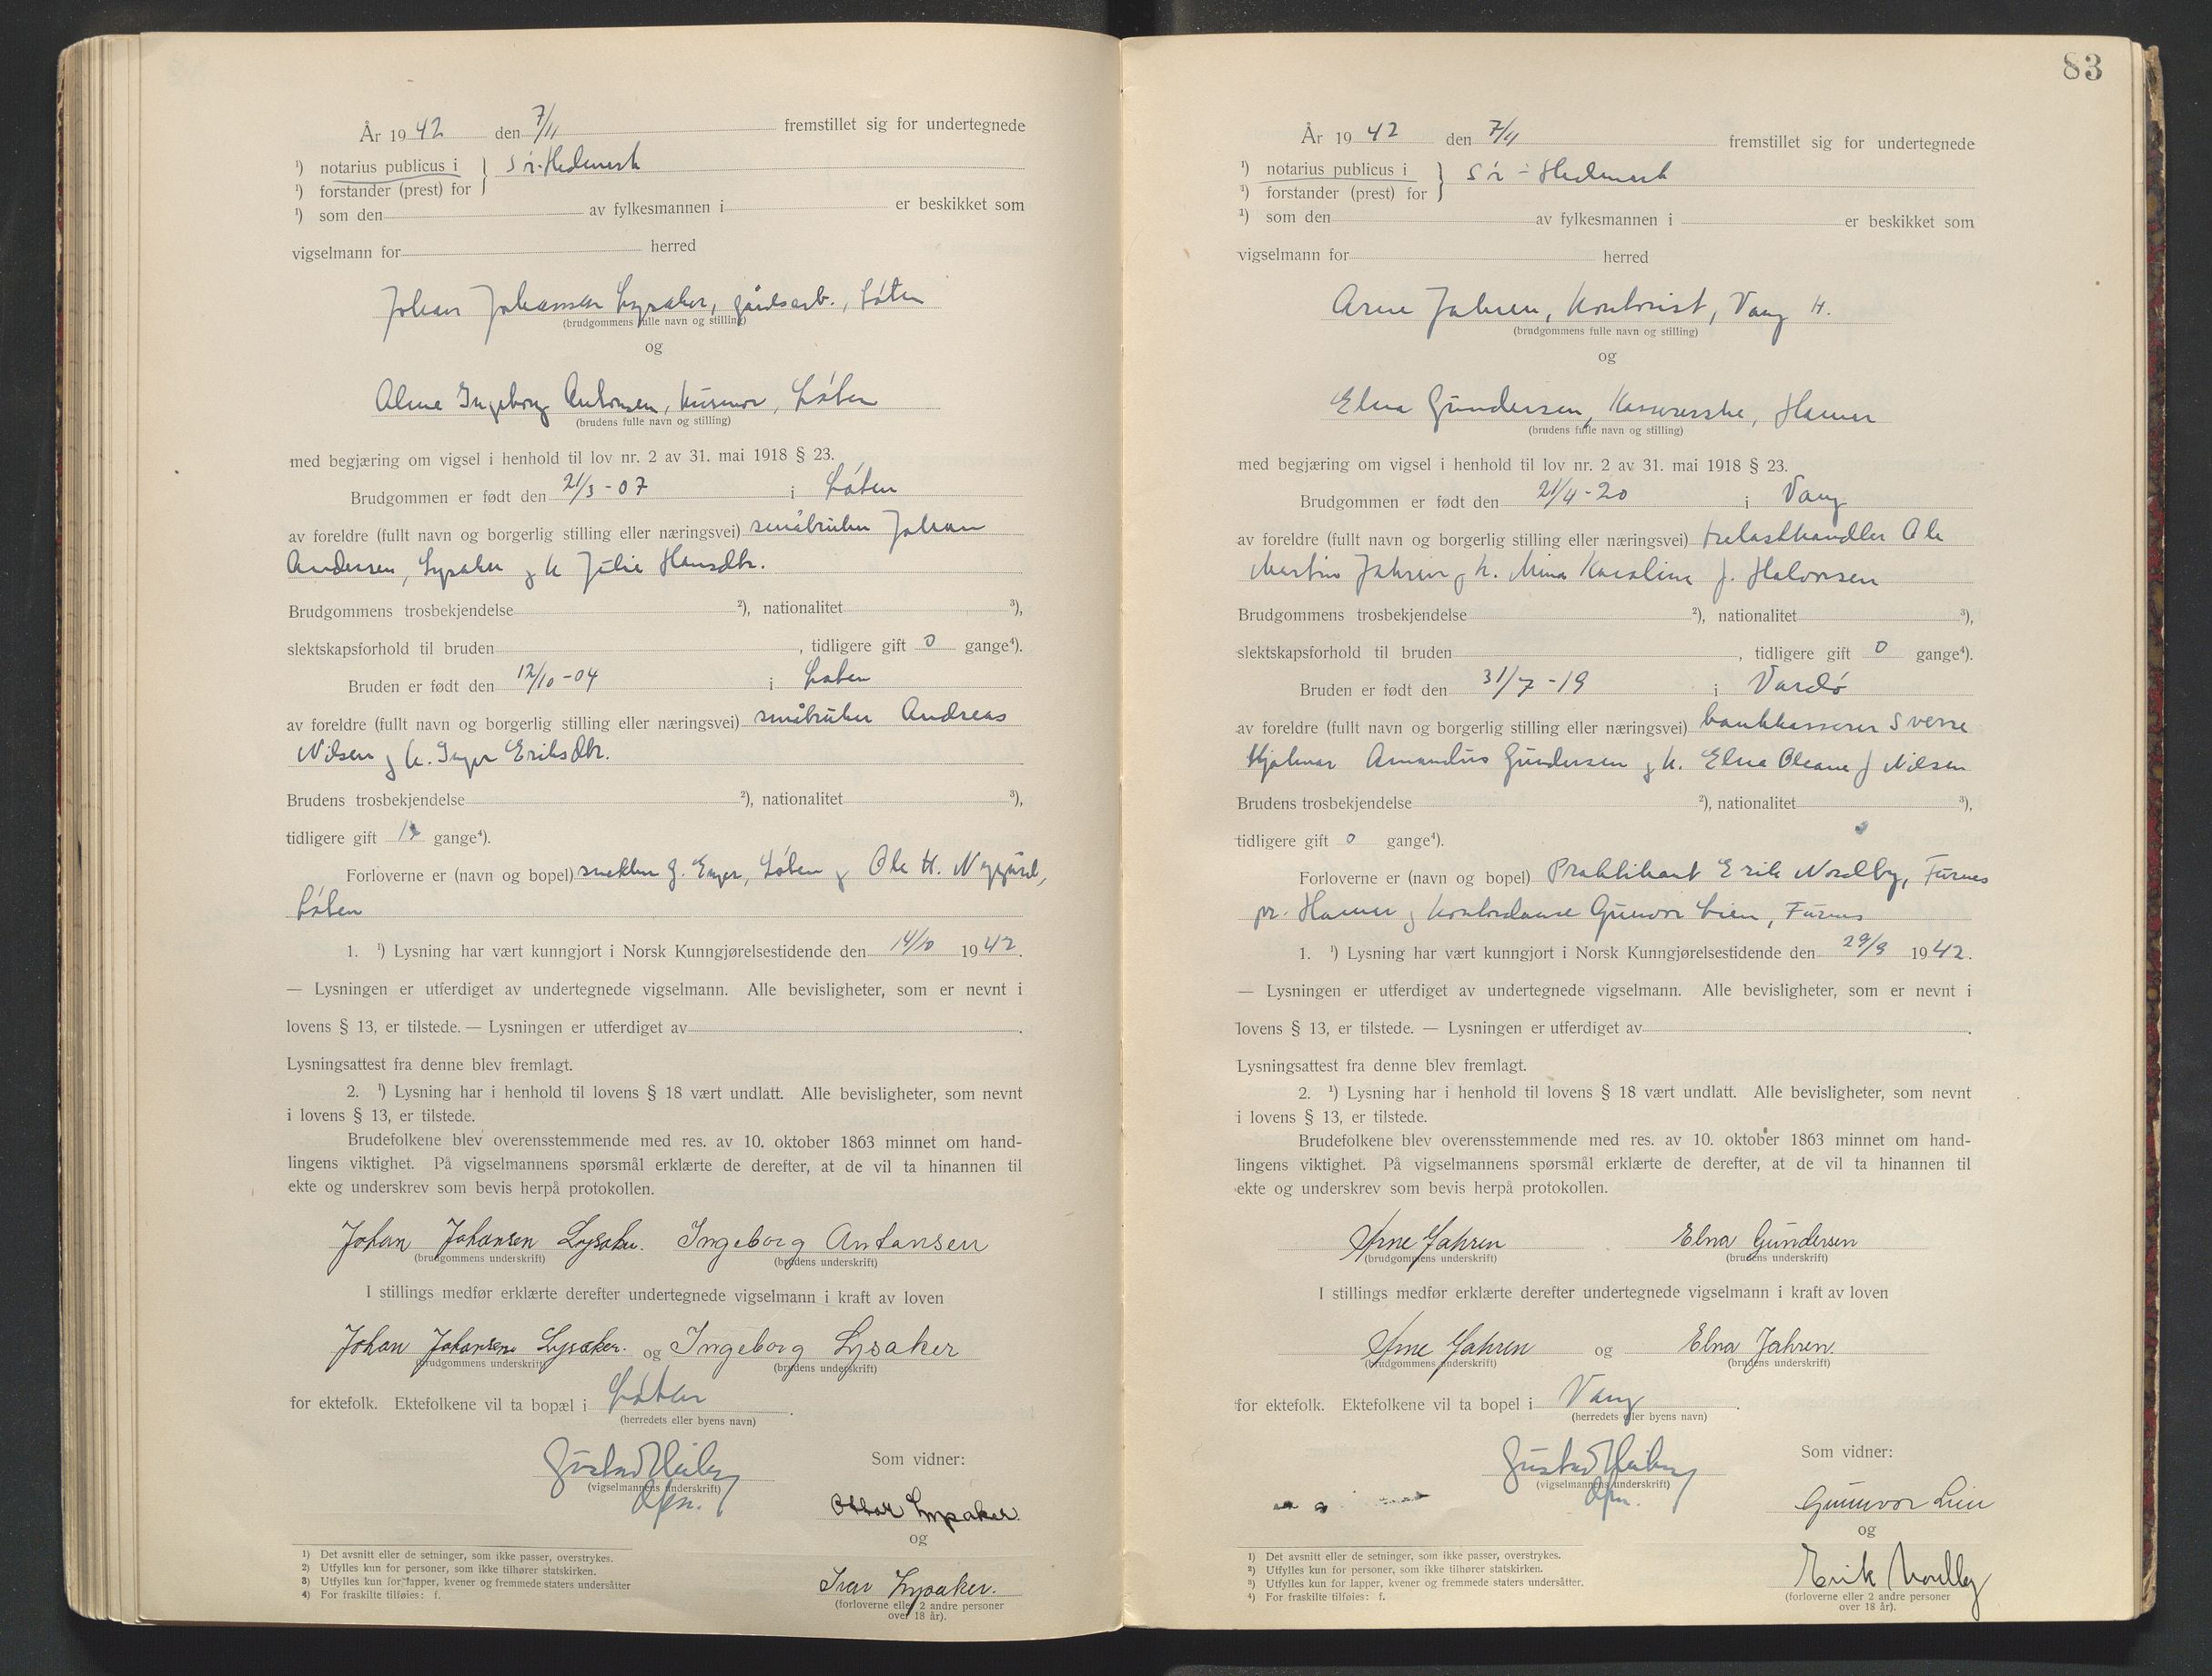 År 1942 den 7/11 fremstillet sig for undertegnede
¹) notarius publicus i } Sør-Hedmark
¹) forstander (prest) for
¹) som den av fylkesmannen i er beskikket som
vigselmann for herred
Johan Johansen Lysaker, gårdsarb., Løten
(brudgommens fulle navn og stilling)
og
Alma Ingeborg Antonsen, husmor, Løten
(brudens fulle navn og stilling)
med begjæring om vigsel i henhold til lov nr. 2 av 31. mai 1918 § 23.
Brudgommen er født den 21/3-07 i Løten
av foreldre (fullt navn og borgerlig stilling eller næringsvei) småbruker Johan
Andersen, Lysaker og h. Julie Hansdtr.
Brudgommens trosbekjendelse ²), nationalitet ³),
slektskapsforhold til bruden , tidligere gift 0 gange⁴).
Bruden er født den 12/10-04 i Løten
av foreldre (fullt navn og borgerlig stilling eller næringsvei) småbruker Andreas
Nilsen og h. Inger Eriksdtr.
Brudens trosbekjendelse ²), nationalitet ³),
tidligere gift gange⁴).
Forloverne er (navn og bopel) snekker J. Enger, Løten og Ole H. Nygård,
Løten
1. ¹) Lysning har vært kunngjort i Norsk Kunngjørelsestidende den 14/10 1942.
— Lysningen er utferdiget av undertegnede vigselmann. Alle bevisligheter, som er nevnt i
lovens § 13, er tilstede. — Lysningen er utferdiget av .
Lysningsattest fra denne blev fremlagt.
2. ¹) Lysning har i henhold til lovens § 18 vært undlatt. Alle bevisligheter, som nevnt
i lovens § 13, er tilstede.
Brudefolkene blev overensstemmende med res. av 10. oktober 1863 minnet om hand-
lingens viktighet. På vigselmannens spørsmål erklærte de derefter, at de vil ta hinannen til
ekte og underskrev som bevis herpå protokollen.
Johan Johansen Lysaker. Ingeborg Antonsen
(brudgommens underskrift) (brudens underskrift)
I stillings medfør erklærte derefter undertegnede vigselmann i kraft av loven
Johan Johansen Lysaker. og Ingeborg Lysaker
(brudgommens underskrift) (brudens underskrift)
for ektefolk. Ektefolkene vil ta bopæl i Løten .
(herredets eller byens navn)
Gustav Heiberg
(vigselmannens underskrift)
Som vidner:
Ottar Lysaker
og
Ivar Lysaker.
(forloverne eller 2 andre personer
over 18 år).
1) Det avsnitt eller de setninger, som ikke passer, overstrykes.
2) Utfylles kun for personer, som ikke tilhører statskirken.
3) Utfylles kun for lapper, kvener og fremmede staters undersåtter
4) For fraskilte tilføies: f.
83
År 1942 den 7/11 fremstillet sig for undertegnede
¹) notarius publicus i } Sør-Hedmark
¹) forstander (prest) for
¹) som den av fylkesmannen i er beskikket som
vigselmann for herred
Arne Jahren, kontorist, Vang H.
(brudgommens fulle navn og stilling)
og
Elna Gundersen, kassererske, Hamar
(brudens fulle navn og stilling)
med begjæring om vigsel i henhold til lov nr. 2 av 31. mai 1918 § 23.
Brudgommen er født den 21/4-20 i Vang
av foreldre (fullt navn og borgerlig stilling eller næringsvei) trelasthandler Ole
Martin Jahren og h. Mina Karoline f. Halvorsen
Brudgommens trosbekjendelse ²), nationalitet ³),
slektskapsforhold til bruden , tidligere gift 0 gange⁴).
Bruden er født den 31/7-19 i Vardø
av foreldre (fullt navn og borgerlig stilling eller næringsvei) bankkasserer Sverre
Hjalmar Amandus Gundersen og h. Elna Oleane f. Nilsen
Brudens trosbekjendelse ²), nationalitet ³),
tidligere gift 0 gange⁴).
Forloverne er (navn og bopel) Praktikant Erik Nordby, Furnes
pr. Hamar og kontordame Gunvor Lien, Furnes
1. ¹) Lysning har vært kunngjort i Norsk Kunngjørelsestidende den 29/9 1942.
— Lysningen er utferdiget av undertegnede vigselmann. Alle bevisligheter, som er nevnt i
lovens § 13, er tilstede. — Lysningen er utferdiget av .
Lysningsattest fra denne blev fremlagt.
2. ¹) Lysning har i henhold til lovens § 18 vært undlatt. Alle bevisligheter, som nevnt
i lovens § 13, er tilstede.
Brudefolkene blev overensstemmende med res. av 10. oktober 1863 minnet om hand-
lingens viktighet. På vigselmannens spørsmål erklærte de derefter, at de vil ta hinannen til
ekte og underskrev som bevis herpå protokollen.
Arne Jahren Elna Gundersen
(brudgommens underskrift) (brudens underskrift)
I stillings medfør erklærte derefter undertegnede vigselmann i kraft av loven
Arne Jahren og Elna Jahren.
(brudgommens underskrift) (brudens underskrift)
for ektefolk. Ektefolkene vil ta bopel i Vang .
(herredets eller byens navn)
Gustav Heiberg
(vigselmannens underskrift)
Som vidner:
Gunnvor Lien
og
Erik Nordby
(forloverne eller 2 andre personer
over 18 år).
1) Det avsnitt eller de setninger, som ikke passer, overstrykes.
2) Utfylles kun for personer, som ikke tilhører statskirken.
3) Utfylles kun for lapper, kvener og fremmede staters undersåtter.
4) For fraskilte tilføies: f.